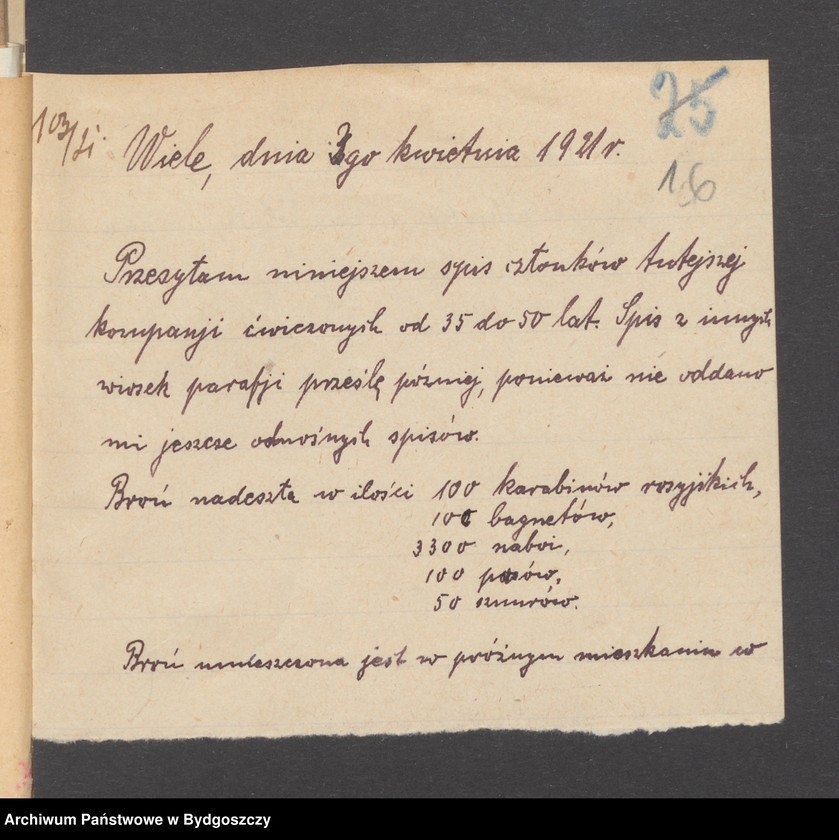 25
103/21
Wiele, dnia 3go kwietnia 1921 r.
16
Przesyłam niniejszem spis członków tutejszej
kompanji ćwiczonych od 35 do 50 lat. Spis z innych
wiosek parafji prześlę później, ponieważ nie oddano
mi jeszcze odnośnych spisów.
Broń nadeszła w ilości 100 karabinów rosyjskich,
100 bagnetów,
3300 naboi,
100 pasów,
50 sznurów.
Broń umieszczona jest w próżnym mieszkaniu w
Archiwum Państwowe w Bydgoszczy